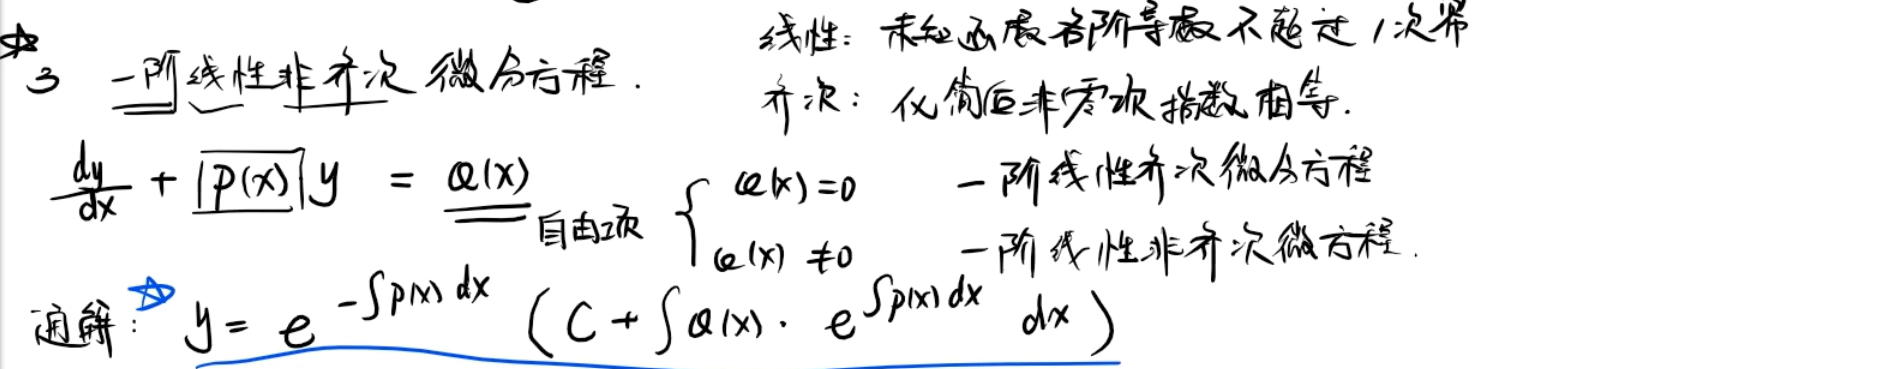 ☆
3 一阶线性非齐次微分方程.
线性: 未知函数各阶导数不超过1次幂
齐次: 化简后非零次指数相等.
dy/dx + P(x) y = Q(x) 自由项
{ Q(x)=0 一阶线性齐次微分方程
Q(x)≠0 一阶线性非齐次微方程.
通解: ☆ y = e^{-∫P(x)dx} (C + ∫Q(x)· e^{∫P(x)dx} dx)